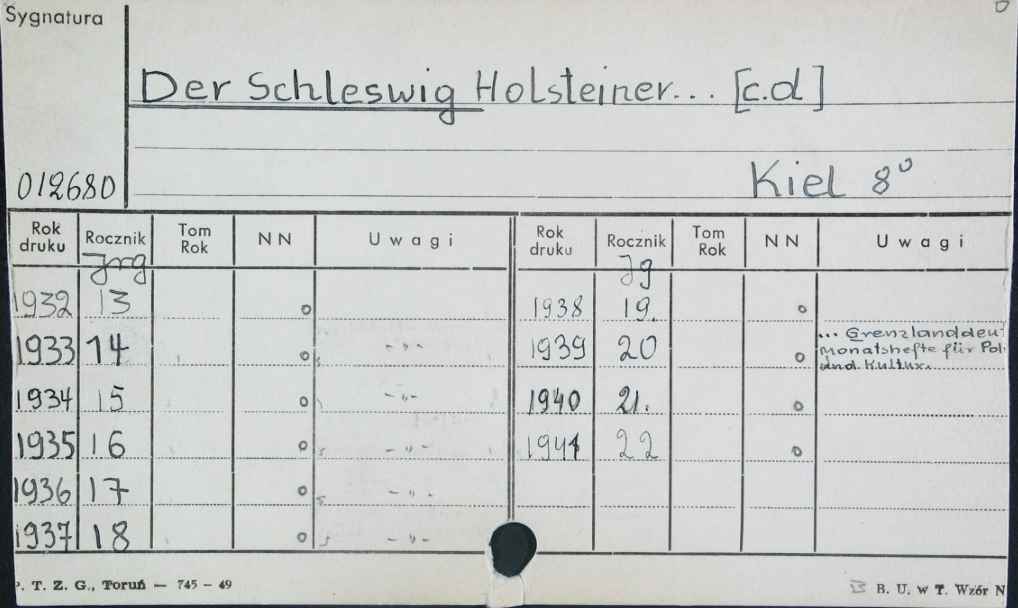 Sygnatura
Der Schleswig Holsteiner... [c.d]
012680
Kiel 8°
Rok druku Rocznik Tom Rok NN Uwagi Rok druku Rocznik Tom Rok NN Uwagi
Jrg Jg
1932 13 o 1938 19. o
1933 14 o -"- 1939 20 o ... Grenzlanddeu
monatshefte für Pol
und. Kultur.
1934 15 o -"- 1940 21. o
1935 16 o -"- 1941 22 o
1936 17 o -"-
1937 18 o -"-
P. T. Z. G., Toruń — 745 – 49
B. U. w T. Wzór N